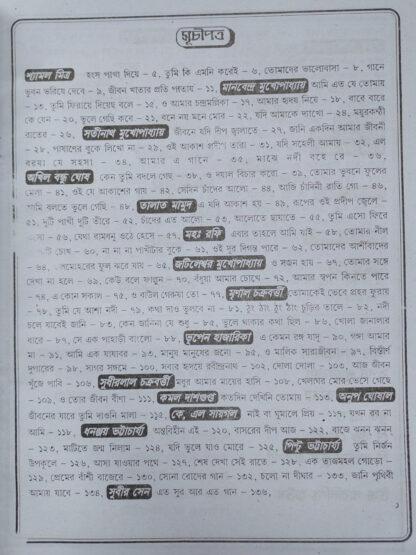 সূচীপত্র
শ্যামল মিত্র হংস পাখা দিয়ে – ৫, তুমি কি এমনি করেই – ৬, তোমাদের ভালোবাসা – ৮, গানে
ভুবন ভরিয়ে দেবে – ৯, জীবন খাতার প্রতি পাতায় – ১১, মানবেন্দ্র মুখোপাধ্যায় আমি এত যে তোমায়
– ১৩, তুমি ফিরায়ে দিয়েছ বলে – ১৫, ও আমার চন্দ্রমল্লিকা – ১৭, আমার হৃদয় নিয়ে – ১৮, বারে বারে
কে যেন – ২০, ভুলে গেছি কবে – ২১, বনে নয় মনে মোর – ২২, যদি আমাকে দ্যাখো – ২৪, ময়ূরকণ্ঠী
রাতের – ২৬, সতীনাথ মুখোপাধ্যায় জীবনে যদি দীপ জ্বালাতে – ২৭, জানি একদিন আমার জীবনী
– ২৮, পাষাণের বুকে লিখো না – ২৯, ওই আকাশ প্রদীপ তারা – ৩১, যদি সহেলী আমায় – ৩২, এল
বরষা যে সহসা – ৩৪, আমার এ গানে – ৩৫, মাঝে নদী বহে রে – ৩৬,
অখিল বন্ধু ঘোষ কেন তুমি বদলে গেছ – ৩৮, ও দয়াল বিচার করো – ৩৯, তোমার ভুবনে ফুলের
মেলা – ৪১, ওই যে আকাশের গায় – ৪২, সেদিন চাঁদের আলো – ৪৪, আজি চাঁদিনী রাতি গো – ৪৬,
গামি বলতে ভুলে গেছি – ৪৮, তালাত মামুদ এ যদি আকাশ হয় – ৪৯, রূপের ওই প্রদীপ জ্বেলে –
৫১, দুটি পাখী দুটি তীরে – ৫২, চাঁদের এত আলো – ৫৩, আলোতে ছায়াতে – ৫৫, তুমি এসো ফিরে
– ৫৬, যেথা রামধনু ওঠে হেসে – ৫৭, মহঃ রফি এবার তাহলে আমি যাই – ৫৮, তোমার নীল
চোখ – ৬০, না না না পাখীটার বুকে – ৬১, ওই দূর দিগন্ত পারে – ৬২, তোমাদের আশীর্বাদের
– ৬৪, ফুল করে যায় – ৬৫, জটিলেশ্বর মুখোপাধ্যায় ও সজন হায় – ৬৭, তোমার সঙ্গে
দেখা না হলে – ৬৯, কেউ বলে ফাল্গুন – ৭০, বঁধুয়া আমার চোখে – ৭২, আমার স্বপন কিনতে পারে
– ৭৪, এ কোন সকাল – ৭৫, ও বাউল গেরুয়া তো – ৭৭, মৃণাল চক্রবর্তী তোমাকেই ভেবে প্রহর ফুরায়
– ৭৮, তুমি যে আশা নদী – ৭৯, কথা দাও ভুলবে না – ৮১, ঠুং ঠাং ঠুং ঠাং চুড়ির তালে – ৮২, নদী
চলে যাবেই জানি – ৮৩, কেন জানিনা যে শুধু – ৮৫, ভুলে থাকার কথা ছিল – ৮৬, খোলা জানালার
ধারে – ৮৭, সে এক পাহাড়ী বাংলো – ৮৮, ভূপেন হাজারিকা এ কেমন রঙ্গ যাদু – ৯০, গঙ্গা আমার
মা – ৯১, আমি এক যাযাবর – ৯৩, মানুষ মানুষের জন্যে – ৯৫, ও মালিক সারাজীবন – ৯৭, বিস্তীর্ণ
দুপারের – ৯৮, সাগর সঙ্গমে – ১০০, সবার হৃদয়ে রবীন্দ্রনাথ – ১০২, দোলা দোলা – ১০৩, আজ জীবন
খুঁজে পাবি – ১০৬, সুধীরলাল চক্রবর্তী মধুর আমার মায়ের হাসি – ১০৮, খেলাঘর মোর ভেসে গেছে
– ১০৯, ও তোর জীবন বীণা – ১১১, কমল দাশগুপ্ত কতদিন দেখিনি তোমায় – ১১৩, অনুপ ঘোষাল
জীবনের যারে তুমি দাওনি মালা – ১১৫, কে, এল সায়গল নাই বা ঘুমালে প্রিয় – ১১৭, যখন রব না
আমি – ১১৮, ধনঞ্জয় ভট্টাচার্য্য অন্তবিহীন এই – ১২০, বাসরের দীপ আজ – ১২২, বাজে ঝনন ঝনন
– ১২৩, মাটিতে জন্ম নিলাম – ১২৪, যদি ভুলে যাও মোরে – ১২৫, পিন্টু ভট্টাচার্য্য তুমি নির্জন
উপকূলে – ১২৬, আসা যাওয়ার পথে – ১২৭, শেষ দেখা সেই রাতে – ১২৮, এক তাজমহল গোড়ো –
১২৯, প্রেমের বাঁশী বাজেরে – ১৩০, সোনা রোদের গান – ১৩২, চলো না দীঘার – ১৩৩, জানি পৃথিবী
আমায় যাবে – ১৩৪, সুবীর সেন এত সুর আর এত গান – ১৩৬,